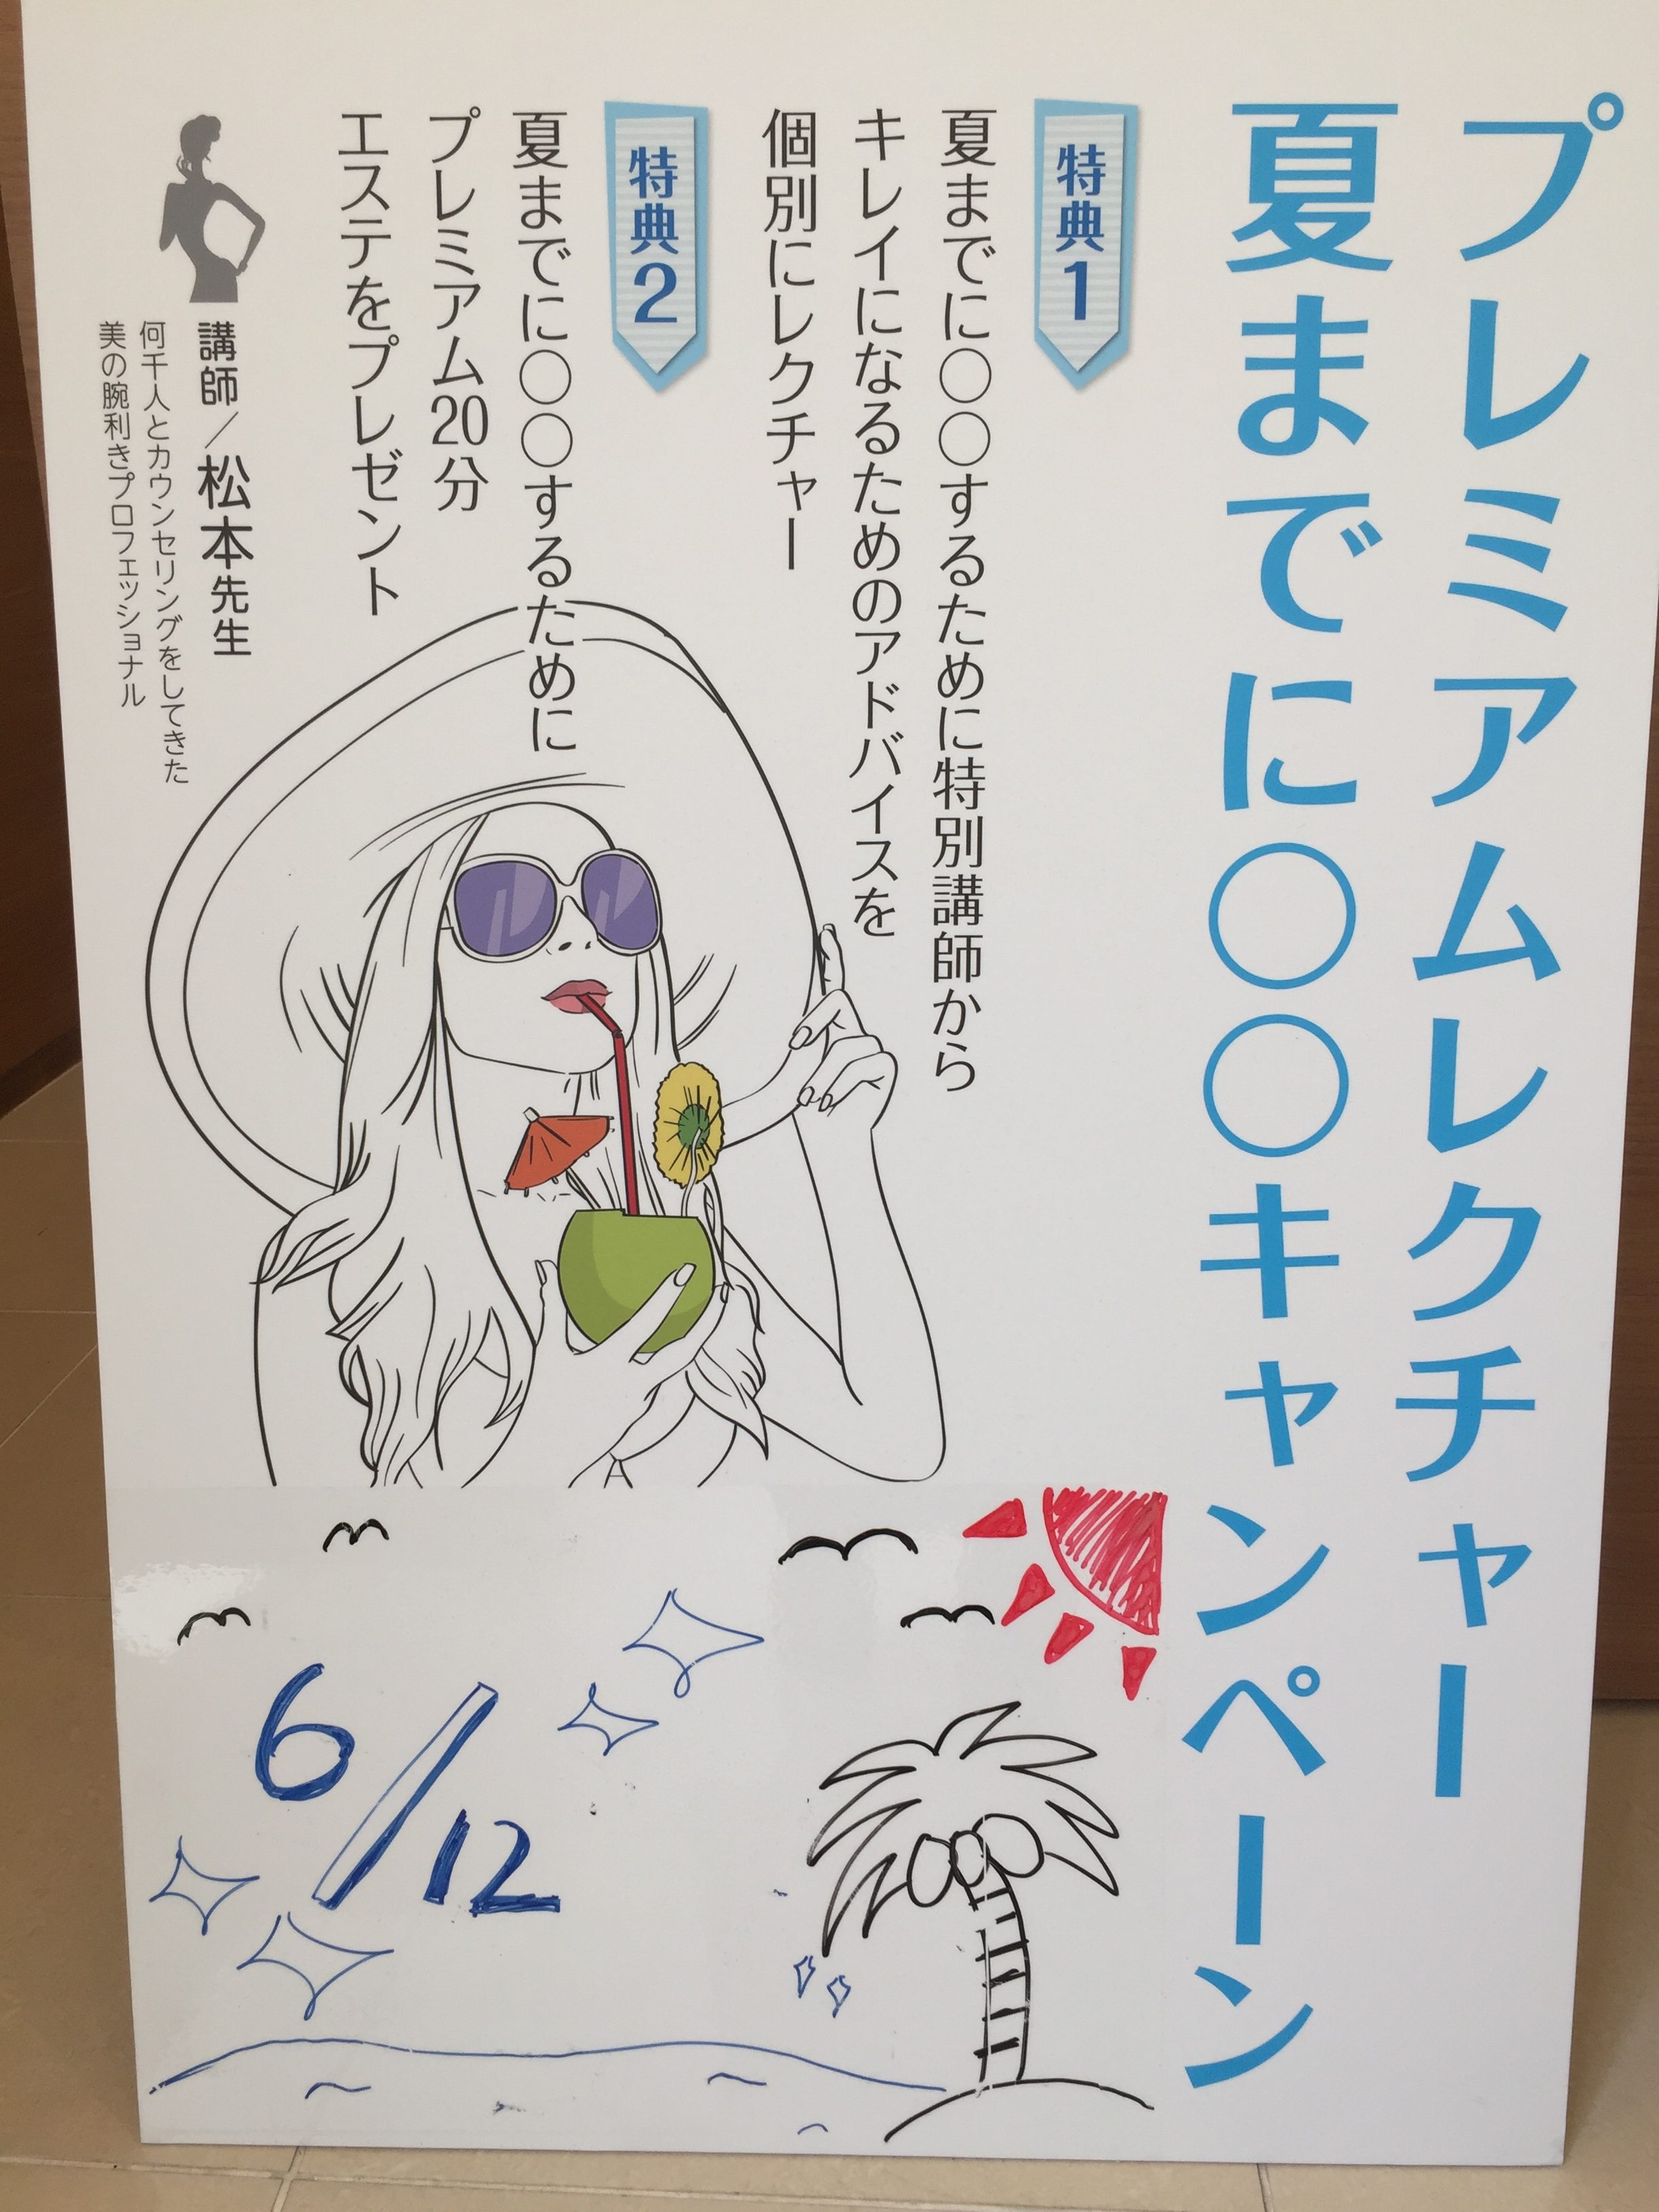 プレミアムレクチャー
夏までに○○キャンペーン
特典1
夏までに○○するために特別講師から
キレイになるためのアドバイスを
個別にレクチャー
特典2
夏までに○○するために
プレミアム20分
エステをプレゼント
講師／松本先生
何千人とカウンセリングをしてきた
美の腕利きプロフェッショナル
6/12